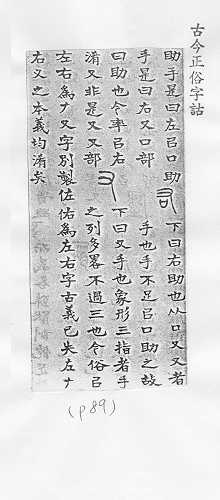 古今正俗字詁
助手是曰左㠯口助 司 下曰右助也从口又又者
手是曰右又口部 手也手不足㠯口助之故
曰助也今率㠯右 又 下曰又手也象形三指者手
淆又非是又又部 之列多畧不過三也今俗㠯
左右為𠂇又字別製佐佑為左右字古義已失左𠂇
右又之本義均淆矣
(p89)